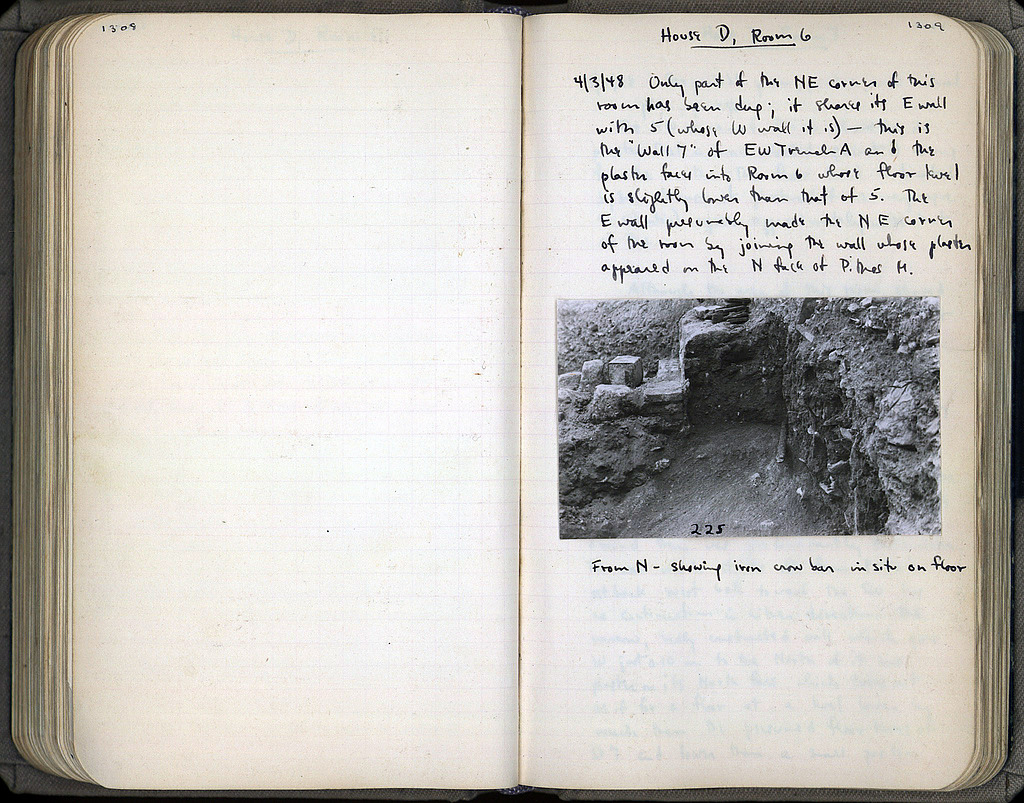 1308
1309
House D, Room 6
4/3/48 Only part of the NE corner of this
room has been dug; it shares its E wall
with 5 (whose W wall it is) — this is
the "Wall 7" of EW Trench A and the
plaster faces into Room 6 whose floor level
is slightly lower than that of 5. The
E wall presumably made the NE corner
of the room by joining the wall whose plaster
appeared on the N face of Pithos M.
225
From N - showing iron crow bar in situ on floor